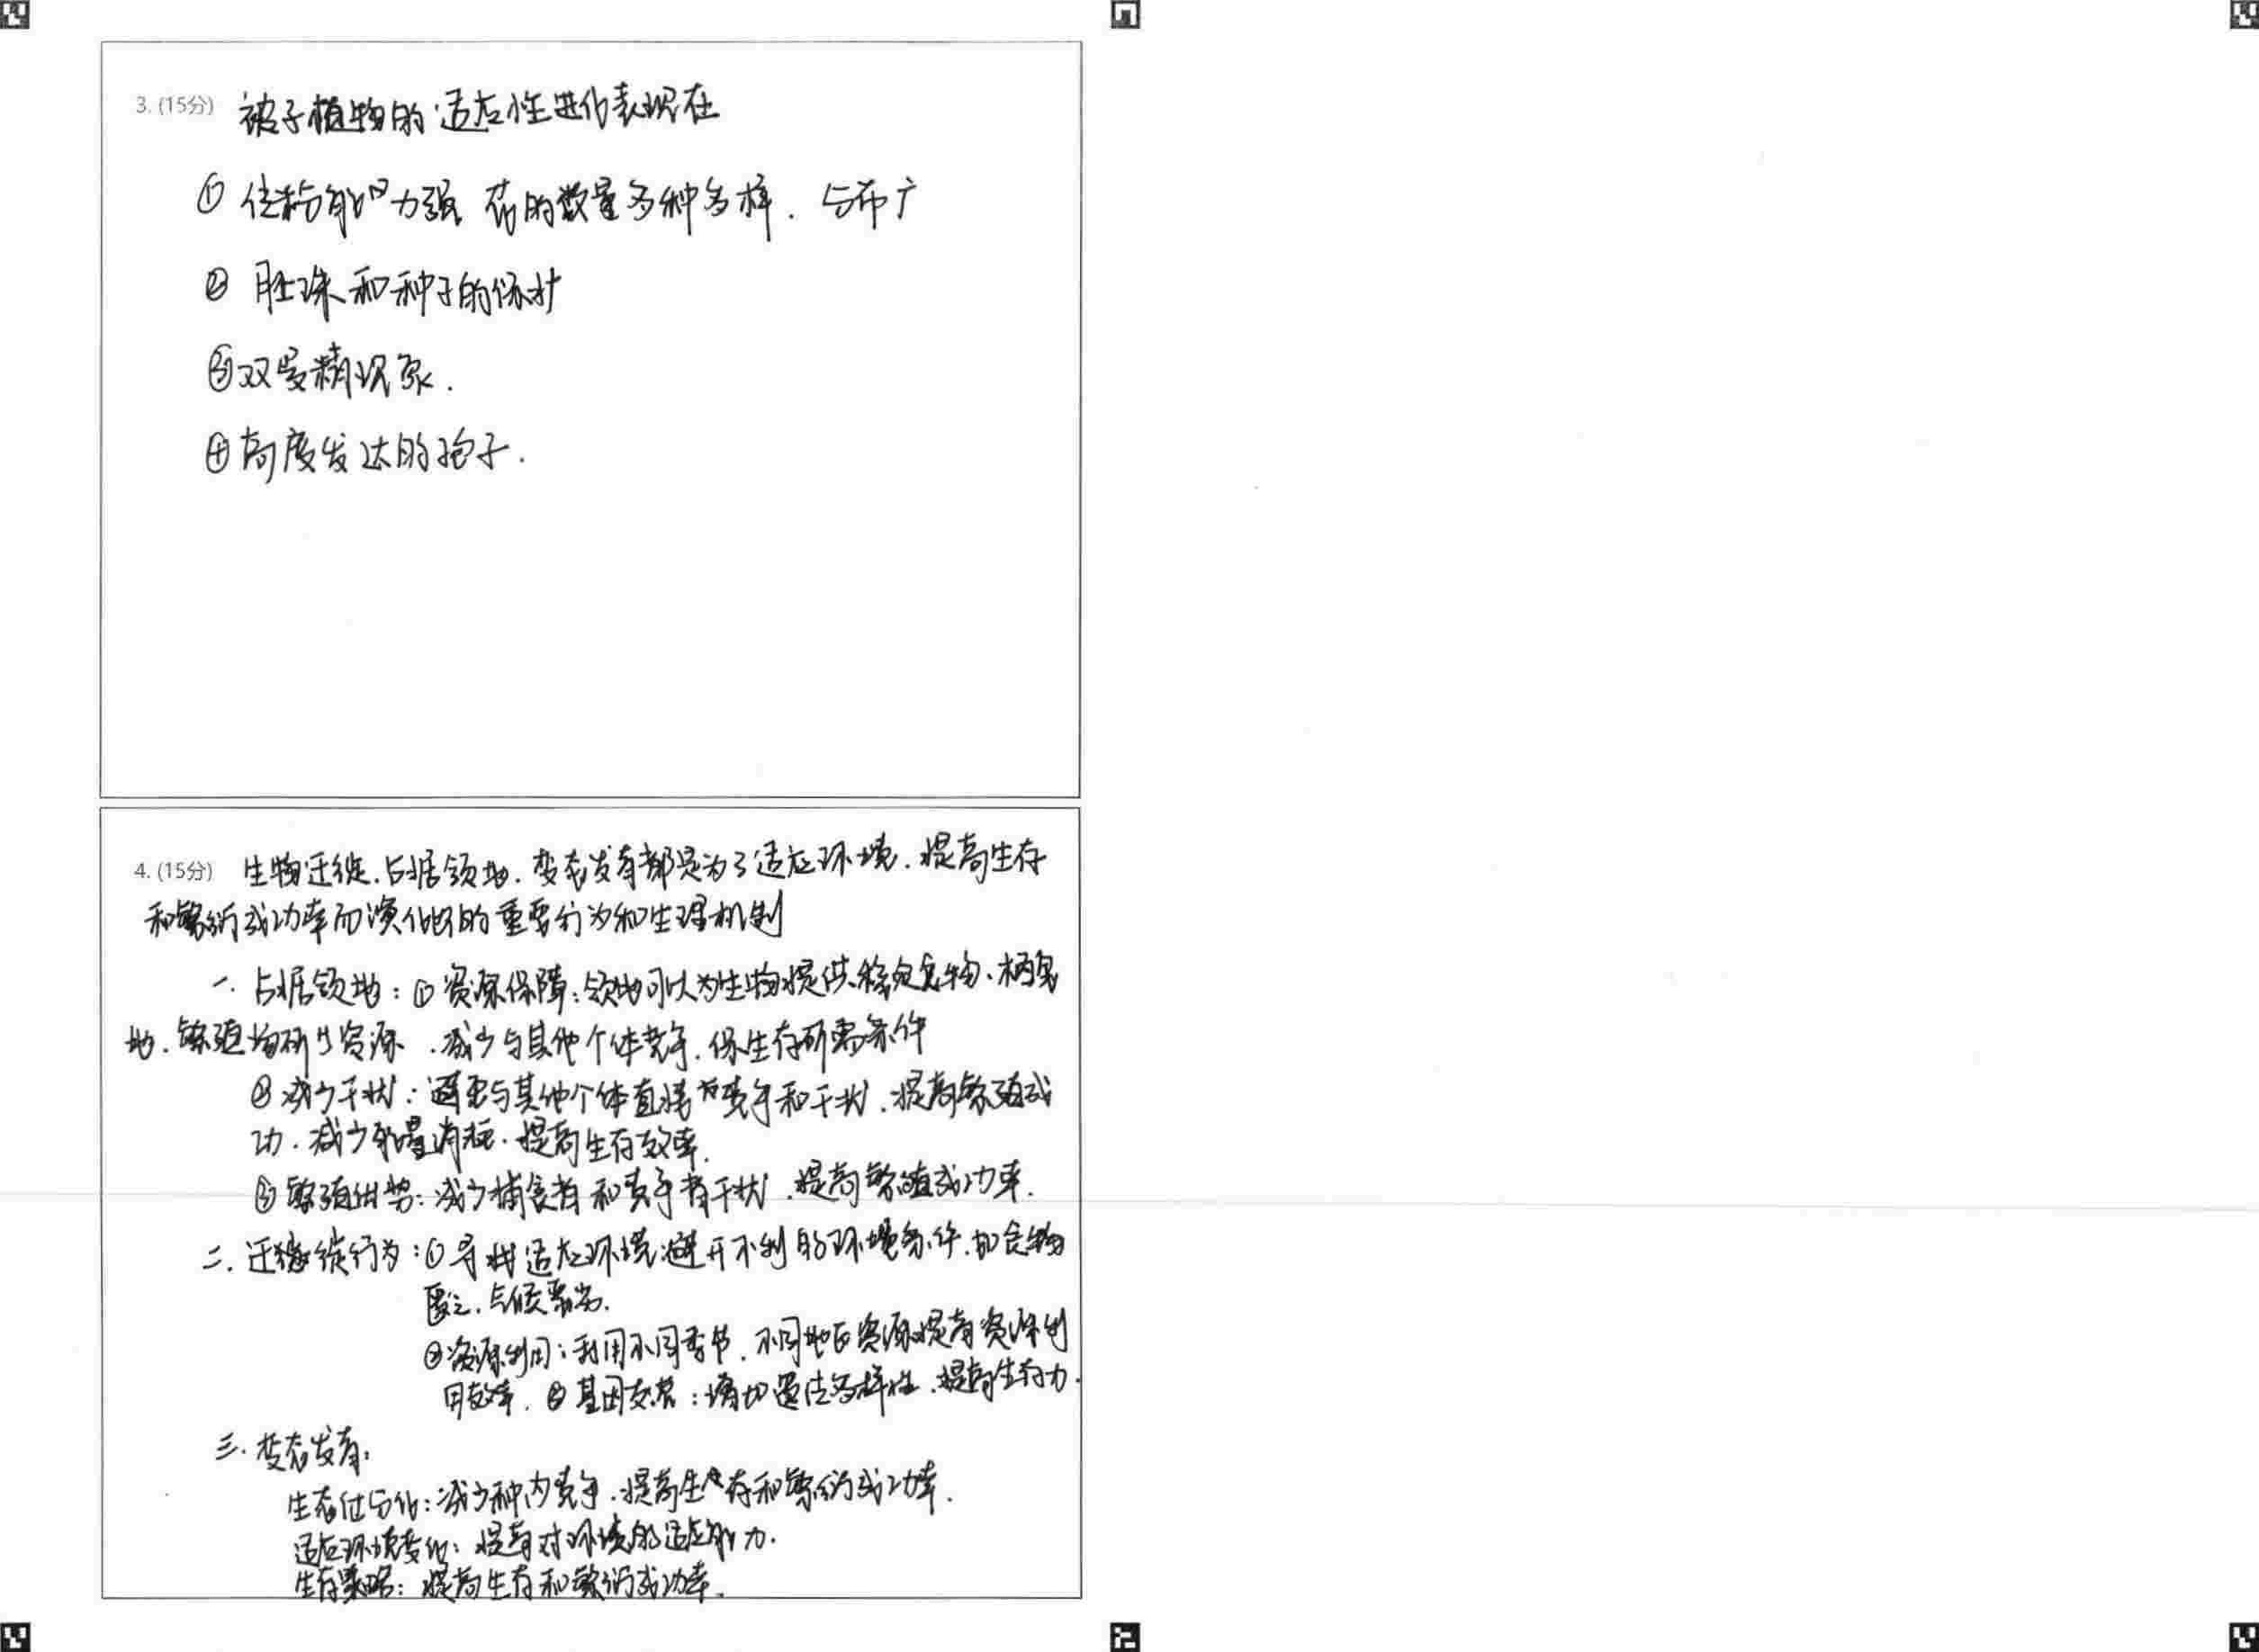 3. (15分) 被子植物的适应性进化表现在
① 传粉能力强 花的数量多种多样. 分布广
② 胚珠和种子的保护
③ 双受精现象.
④ 高度发达的孢子.
4. (15分) 生物迁徙.占据领地.变态发育都是为了适应环境.提高生存
和繁衍成功率而演化的重要行为和生理机制
一. 占据领地: ① 资源保障: 领地可以为生物提供稳定食物、栖息
地.繁殖场所等资源 .减少与其他个体竞争.保生存所需条件
② 减少干扰: 避免与其他个体直接竞争和干扰.提高繁殖成
功.减少能量消耗.提高生存效率.
③ 繁殖优势: 减少捕食者和竞争者干扰.提高繁殖成功率.
二. 迁徙行为: ① 寻找适应环境:避开不利的环境条件.如食物
匮乏.气候恶劣.
② 资源利用: 利用不同季节.不同地区资源提高资源利
用效率. ③ 基因交流: 增加遗传多样性.提高生存力.
三. 变态发育:
生态位分化: 减少种内竞争.提高生存和繁衍成功率.
适应环境变化: 提高对环境的适应能力.
生存策略: 提高生存和繁衍成功率.